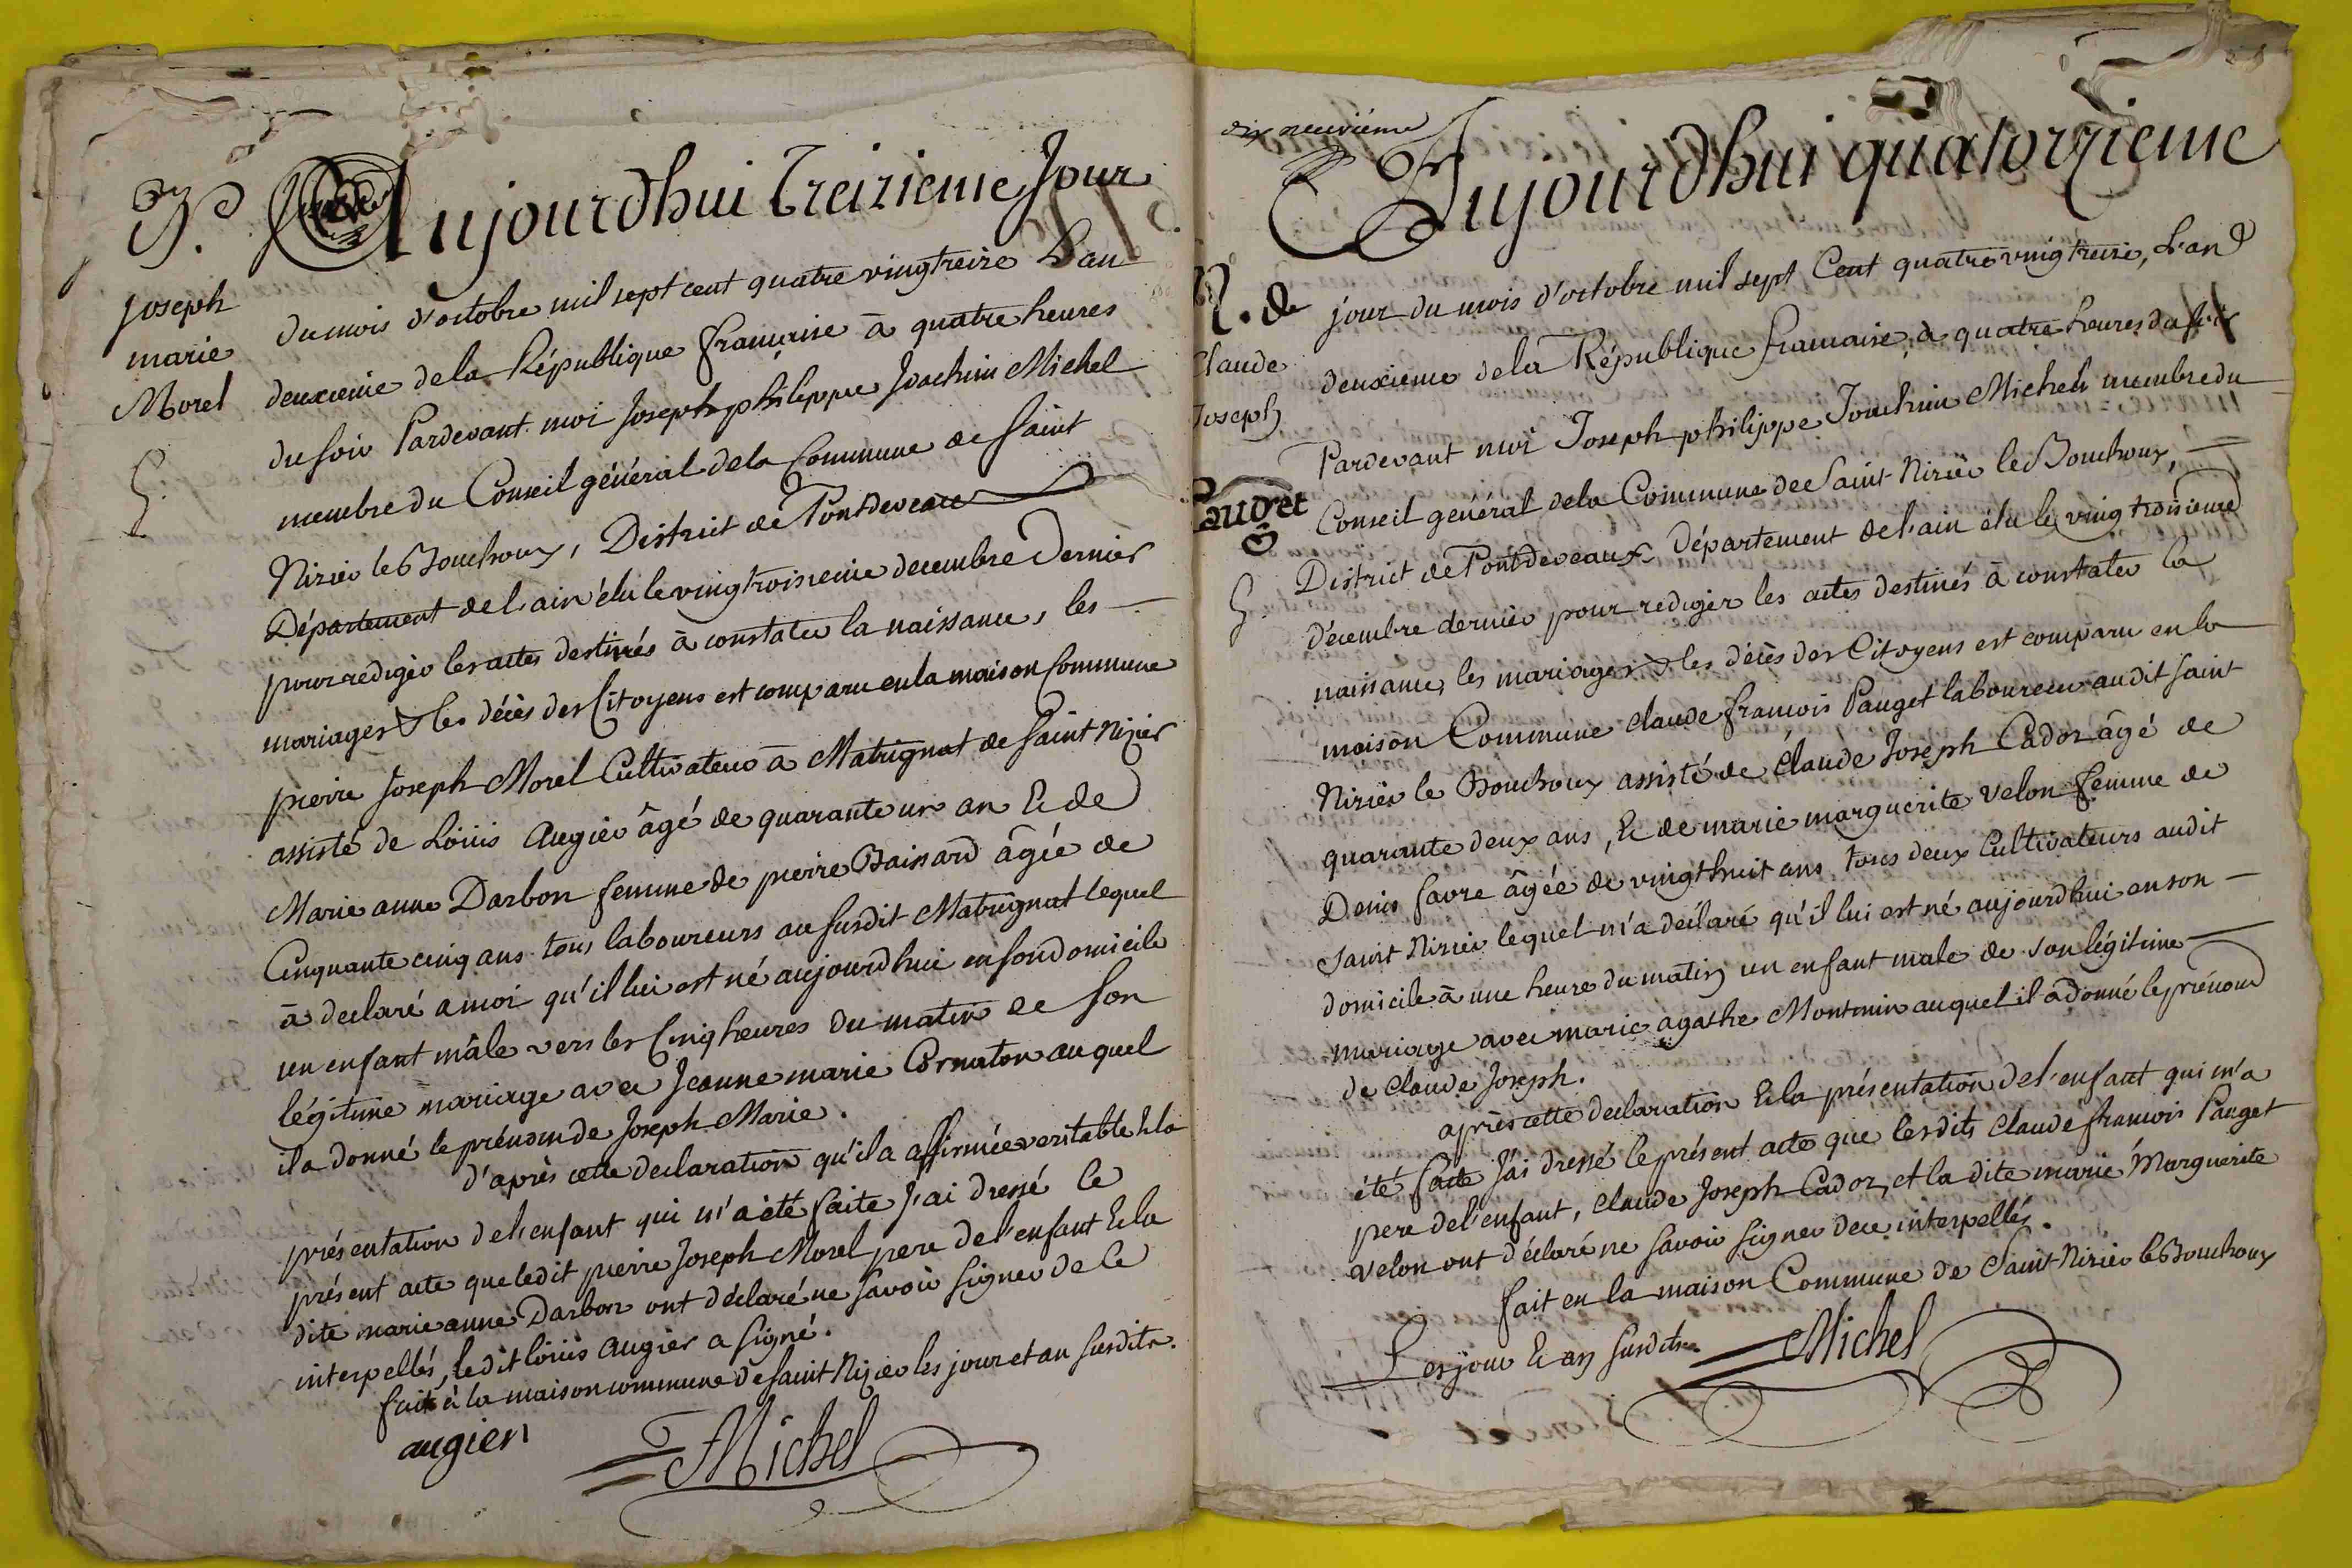 Aujourdhui treizieme Jour
Joseph
marie
Morel
du mois d'octobre mil sept cent quatre vingt treize L'an
deuxieme de la République française à quatre heures
du soir Pardevant moi Joseph philippe Joachim Michel
membre du Conseil général de la Commune de Saint
Nizier le Bouchoux, District de Pontdeveaux
Département de l'ain élu le vingt troisieme decembre dernier
pour rediger les actes destinés à constater la naissance, les
mariages & les décès des Citoyens est comparu en la maison Commune
pierre Joseph Morel Cultivateur à Matrignat de Saint Nizier
assisté de Loüis Augier âgé de quarante un an & de
Marie anne Darbon femme de pierre Baissard âgée de
Cinquante cinq ans tous laboureurs au susdit Matrignat lequel
à declaré a moi qu'il lui est né aujourdhui en son domicile
un enfant mâle vers les Cinq heures du matin de son
légitime mariage avec Jeanne marie Cornaton auquel
il a donné le prénom de Joseph Marie.
d'après cette declaration qu'il a affirmée veritable & la
présentation de l'enfant qui m'a été faite J'ai dressé le
présent acte que ledit pierre Joseph Morel pere de l'enfant & la
dite marie anne Darbon ont déclaré ne savoir signer de ce
interpellés, ledit loüis augier a signé.
fait à la maison commune de Saint Nizier les jour et an susdits.
augier
Michel
dix neuvième
Aujourdhui quatorzieme
N. de
Claude
Joseph
Pauget
jour du mois d'octobre mil sept Cent quatre vingt treize, L'an
deuxieme de la République francaise, à quatre heures du soir
Pardevant moi Joseph philippe Joachim Michel membre du
Conseil général de la Commune de Saint-Nizier le Bouchoux,
District de Pontdeveaux Département de l'ain élu le vingt troisieme
décembre dernier pour rediger les actes destinés à constater la
naissance, les mariages & les décès des Citoyens est comparu en la
maison Commune claude françois Pauget laboureur audit Saint
Nizier le Bouchoux assisté de Claude Joseph Cadoz âgé de
quarante deux ans, & de marie marguerite Velon femme de
Denis favre âgée de vingt huit ans tous deux Cultivateurs audit
Saint Nizier lequel m'a déclaré qu'il lui est né aujourdhui en son
domicile à une heure du matin un enfant male de son légitime
mariage avec marie agathe Montmin auquel il a donné le prénom
de Claude Joseph.
après cette declaration & la présentation de l'enfant qui m'a
été faite J'ai dressé le présent acte que lesdits claude francois Pauget
pere de l'enfant, claude Joseph Cadoz, et la dite marie Marguerite
velon ont déclaré ne savoir signer de ce interpellés.
fait en la maison Commune de Saint-Nizier le Bouchoux
Les jour & an susdits.
Michel